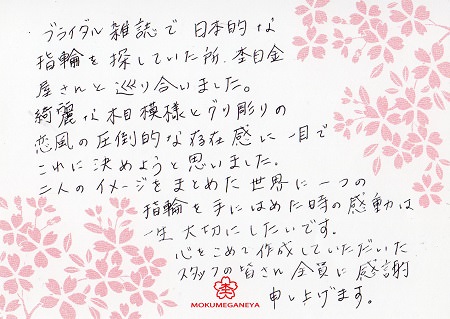 ブライダル雑誌で日本的な
指輪を探していた所、杢目金
屋さんと巡り合いました。
綺麗な木目模様とグリ彫りの
恋風の圧倒的な存在感に一目で
これに決めようと思いました。
二人のイメージをまとめた世界に一つの
指輪を手にはめた時の感動は
一生大切にしたいです。
心をこめて作成していただいた
スタッフの皆さん全員に感謝
申し上げます。
MOKUMEGANEYA